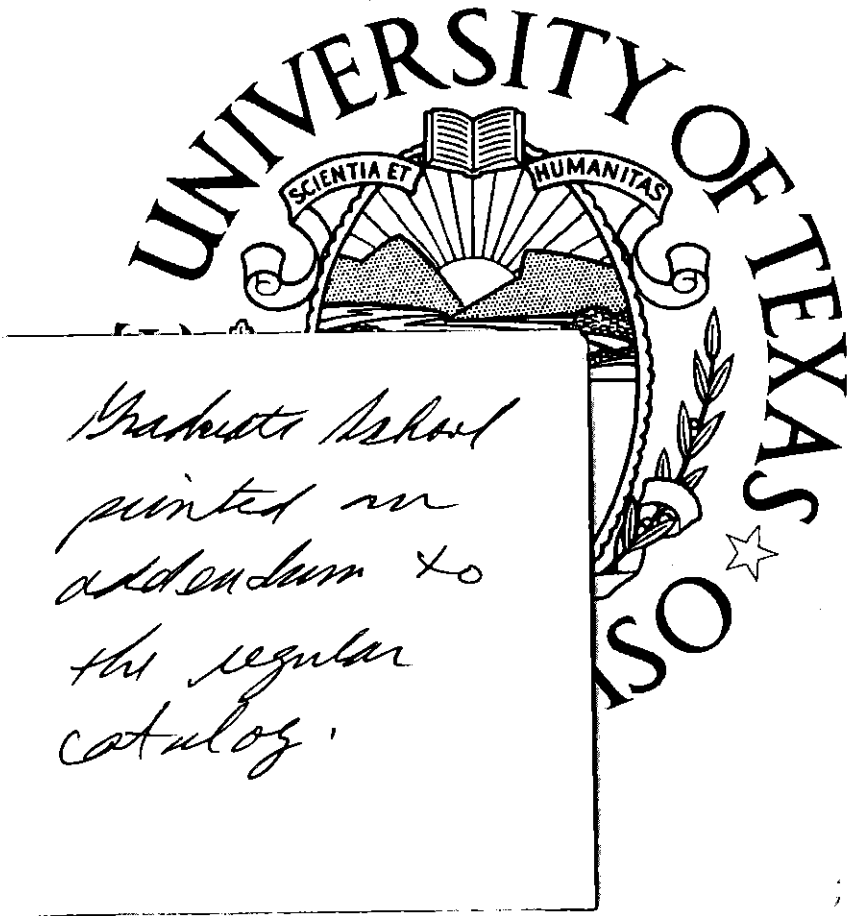 UNIVERSITY OF TEXAS
SCIENTIA ET HUMANITAS
Graduate School
printed an
addendum to
the regular
catalog.